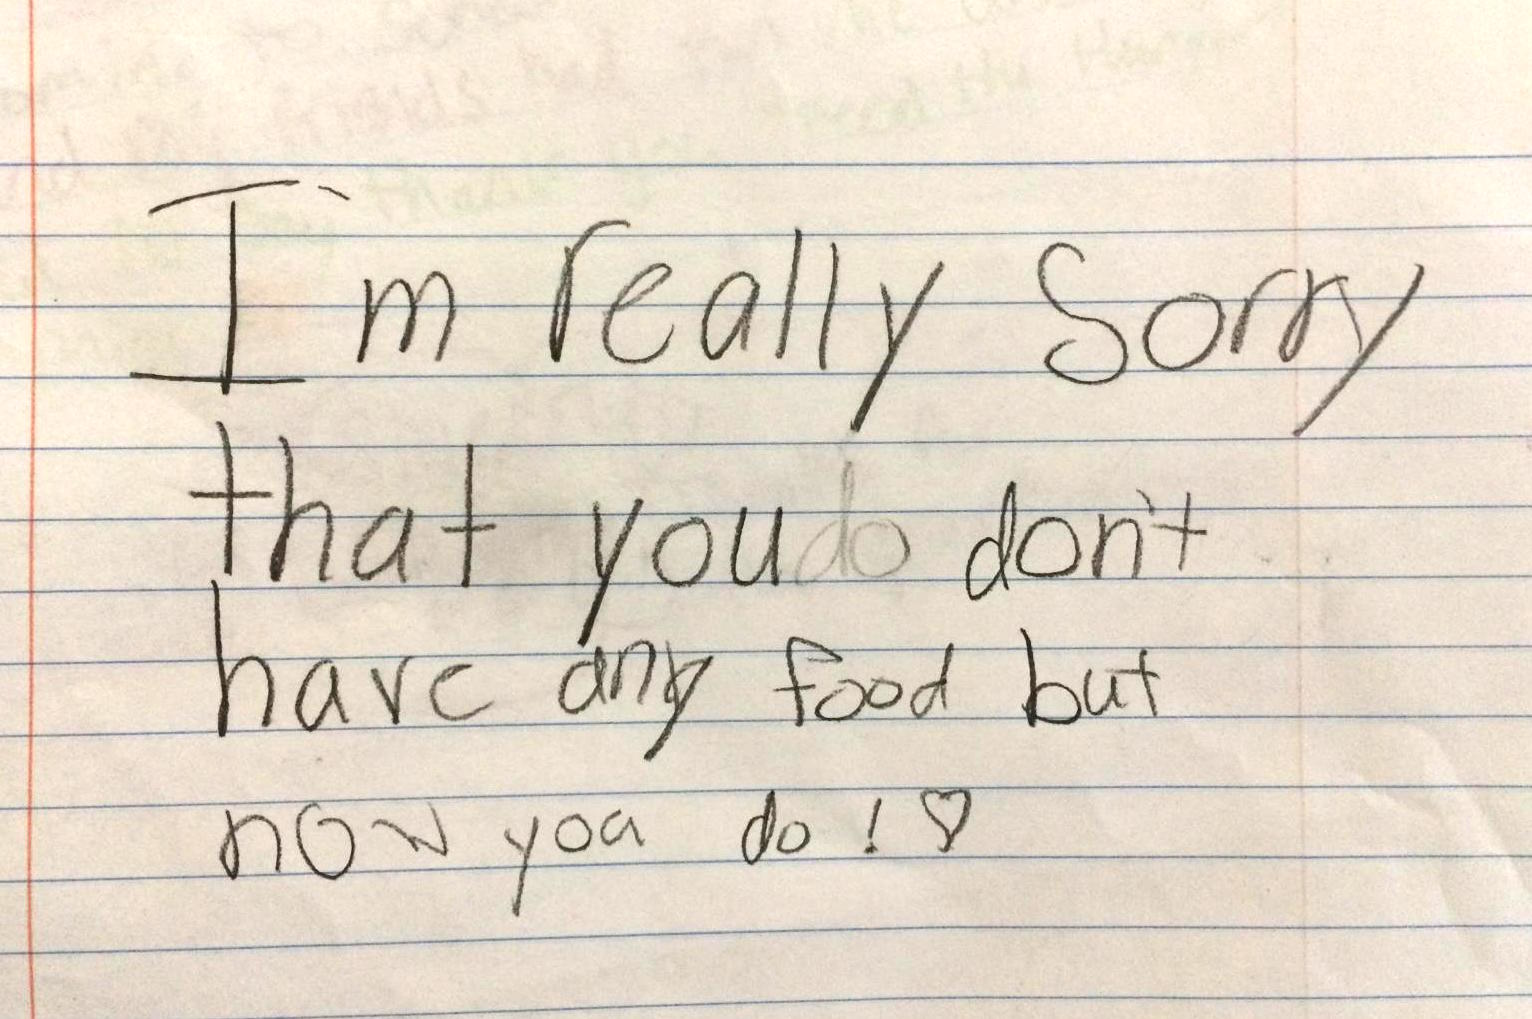 I'm really Sorry
that you do don't
have any food but
now you do! ♡